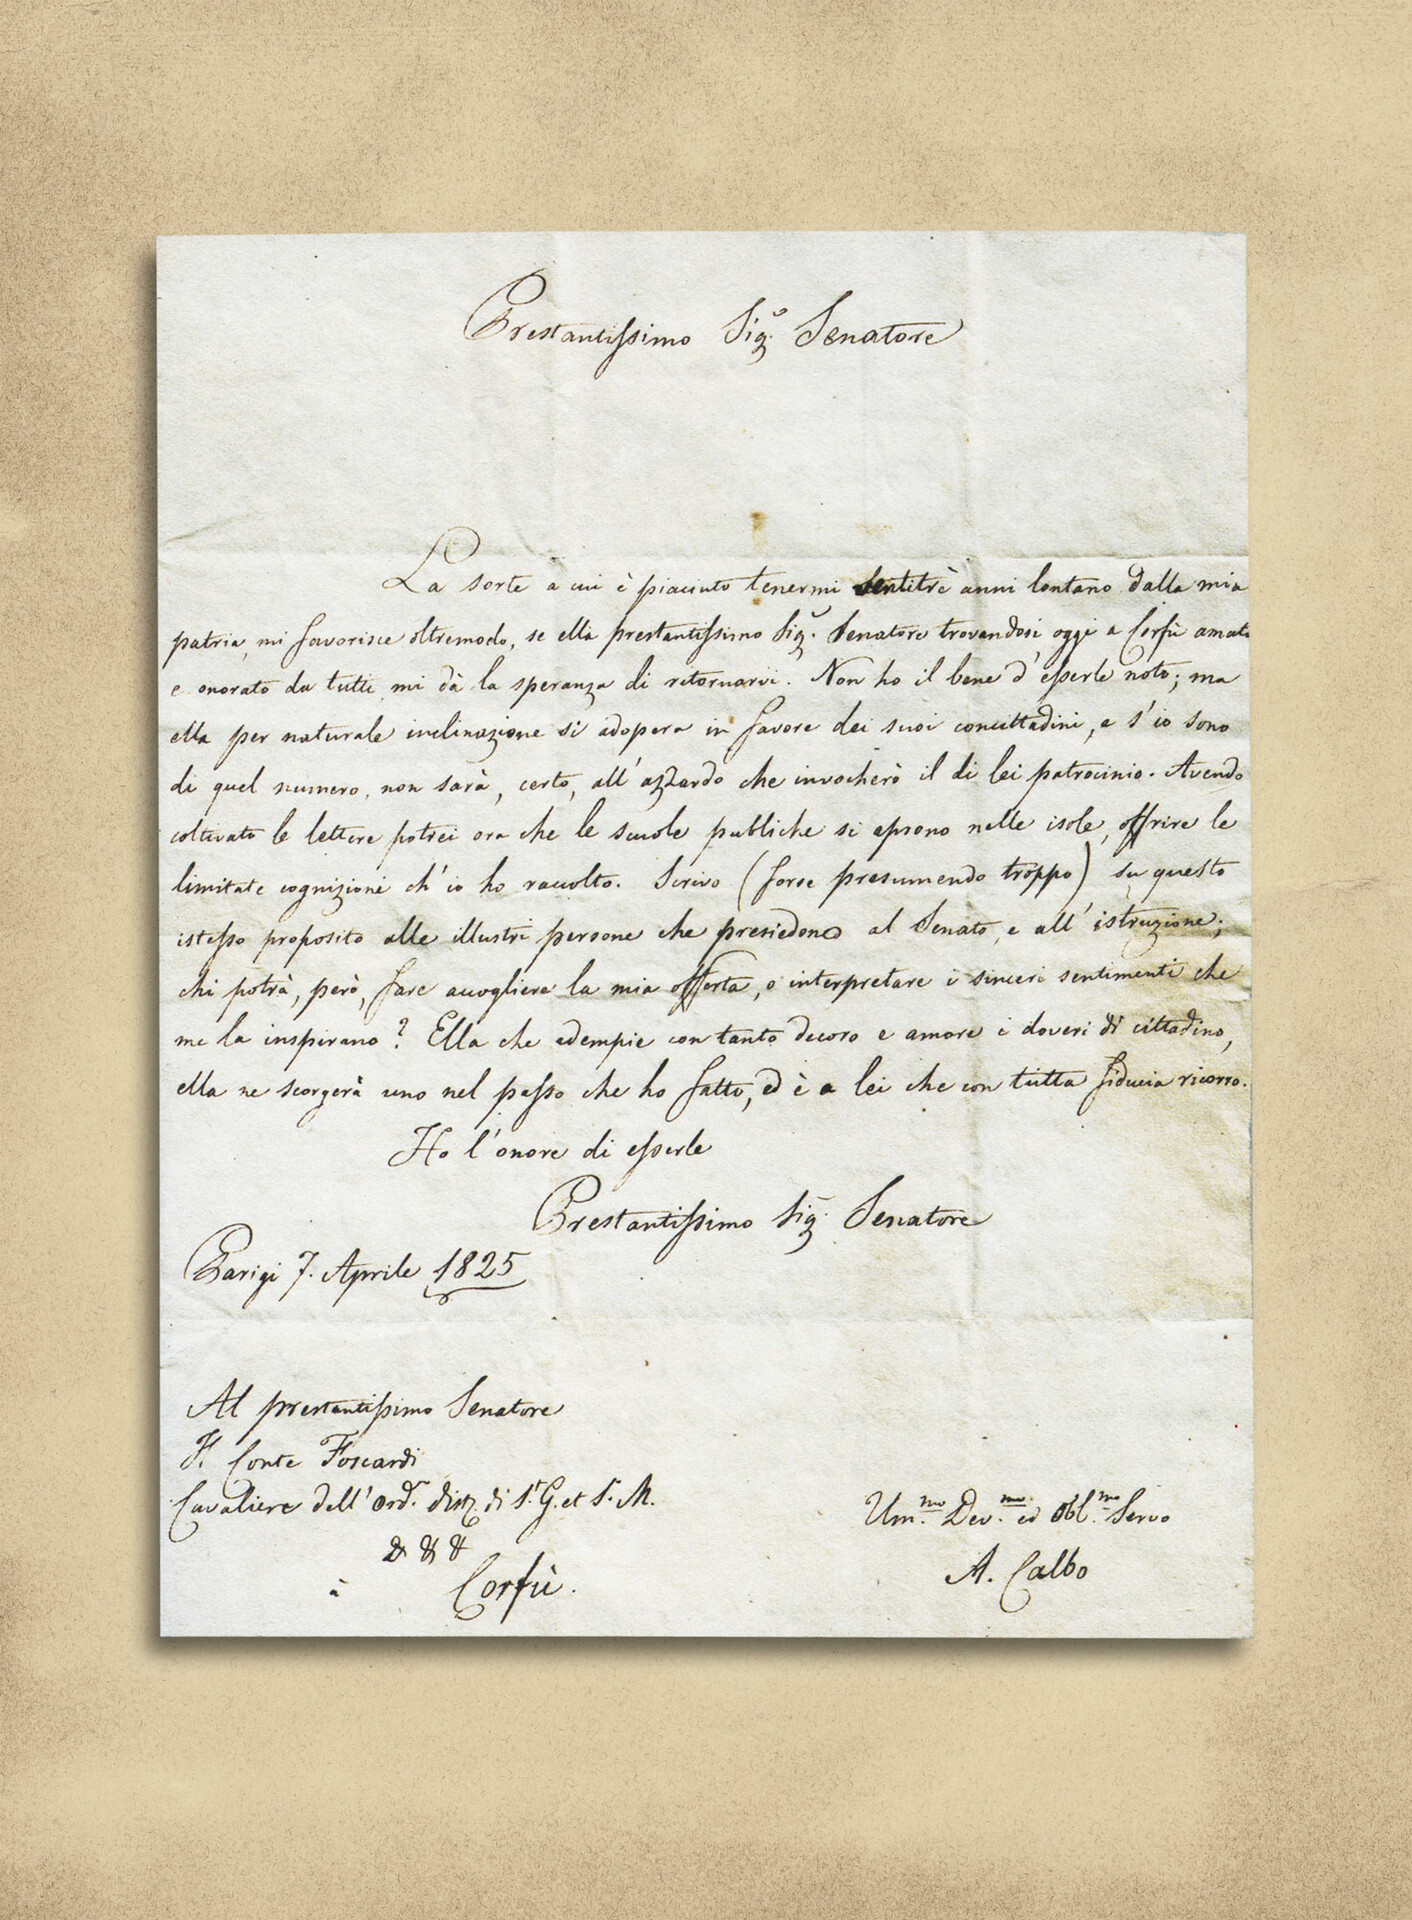 Prestantissimo Sig.r Senatore
La sorte a cui è piaciuto tenermi ventitrè anni lontano dalla mia
patria, mi favorisce oltremodo, se ella prestantissimo Sig.r Senatore trovandosi oggi a Corfù amato
e onorato da tutti, mi dà la speranza di ritornarvi. Non ho il bene d'esserle noto; ma
ella per naturale inclinazione si adopera in favore dei suoi concittadini, e s'io sono
di quel numero, non sarà, certo, all'azzardo che invocherò il di lei patrocinio. Avendo
coltivato le lettere potrei ora che le scuole publiche si aprono nelle isole, offrire le
limitate cognizioni ch'io ho raccolto. Scrivo (forse presumendo troppo) su questo
istesso proposito alle illustri persone che presiedono al Senato, e all'istruzione;
chi potrà, però, fare accogliere la mia offerta, o interpretare i sinceri sentimenti che
me la inspirano? Ella che adempie con tanto decoro e amore i doveri di cittadino,
ella ne scorgerà uno nel passo che ho fatto, ed è a lei che con tutta fiducia ricorro.
Ho l'onore di esserle
Prestantissimo Sig.r Senatore
Parigi 7. Aprile 1825
Al prestantissimo Senatore
F. Conte Foscardi
Cavaliere dell'Ord.e dist.o di S.t G. et S.t M.
& & &
à Corfù.
Um.mo Dev.mo ed Obl.mo Servo
A. Calbo